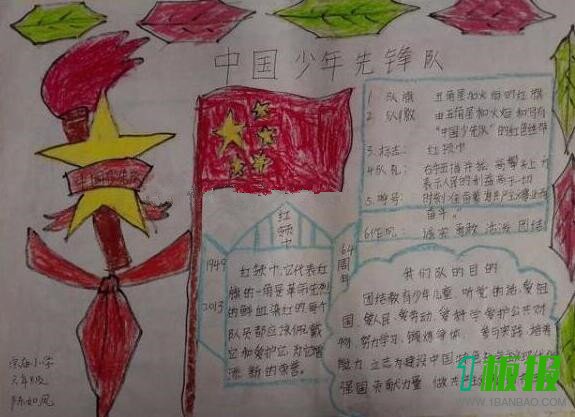 中国少年先锋队
1. 队旗 五角星加火炬的红旗
2. 队徽 由五角星和火炬和写有
"中国少先队"的红色绶带
3. 标志: 红领巾
4. 队礼: 右手五指并拢 高举头上 
表示人民的利益高于一切
5. 呼号: 时刻准备着
奋斗。
6. 作风: 诚实 勇敢 活泼 团结
红领巾
64周年
1949
2013
红领巾,它代表红
旗的一角是革命先烈
的鲜血染红的。每个
队员都应该佩戴
它和爱护它,为它增
添新的荣誉。
我们队的目的
团结教育少年儿童,听党的话,爱祖
国、爱人民、爱劳动、爱科学、爱护公共财
物,努力学习,锻炼身体,参与实践,培养
能力,立志为建设中国特色
强国贡献力量,做共产
小学
六年级
板报
WWW.1BANBAO.COM